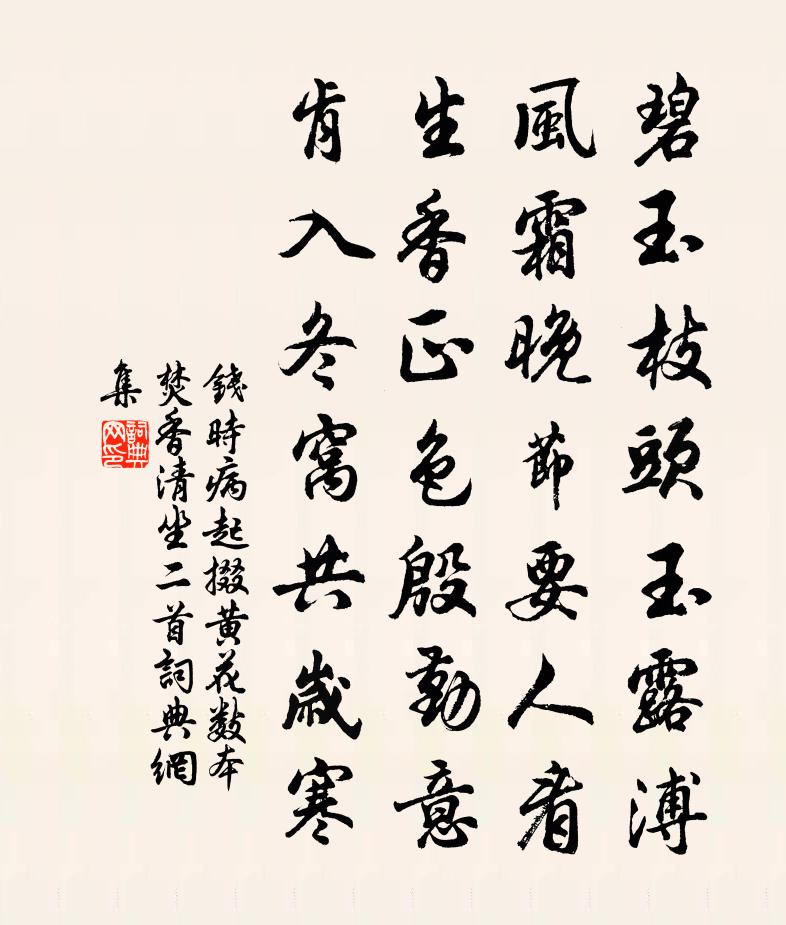 碧玉枝頭玉露漙
風霜晚節要人看
生香正色殷勤意
肯入冬窩共歲寒
錢時病起掇黃花數本
焚香清坐二首詞典網
集
詞典網印